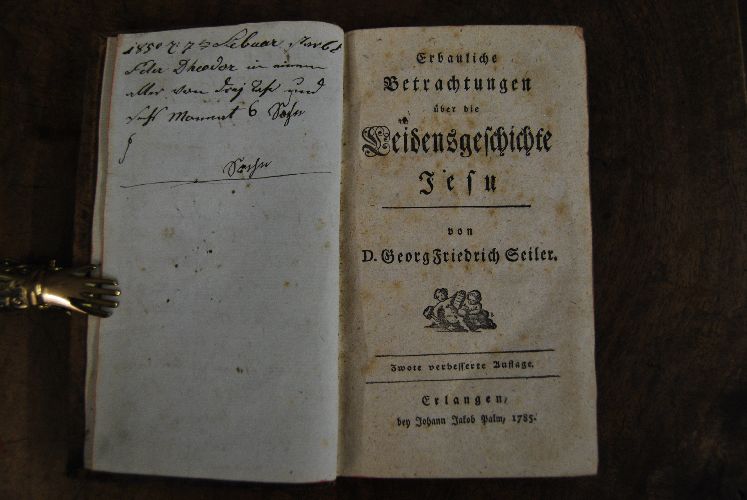 1850 7 Febuar starb
Peter Theodor in einem
alter von drej und
Monnat 6
Erbauliche
Betrachtungen
über die
Leidensgeschichte
Jesu
von
D. Georg Friedrich Seiler.
Zwote verbesserte Auflage.
Erlangen,
bey Johann Jakob Palm, 1785.